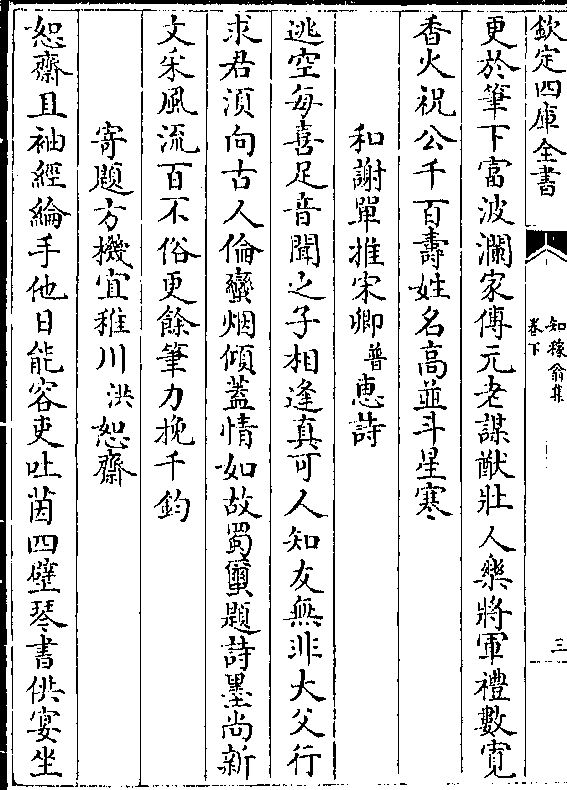 欽定四庫全書
知稼翁集
卷下
三
更於筆下富波瀾家傳元老謀猷壯人樂將軍禮數寛
香火祝公千百壽姓名高並斗星寒
和謝單推宋卿普惠詩
逃空每喜足音聞之子相逢真可人知友無非大父行
求君須向古人倫蠻烟傾蓋情如故蜀璽題詩墨尚新
文采風流百不俗更餘筆力挽千鈞
寄題方機宜稚川洪恕齋
恕齋且袖經綸手他日能容吏吐茵四壁琴書供宴坐